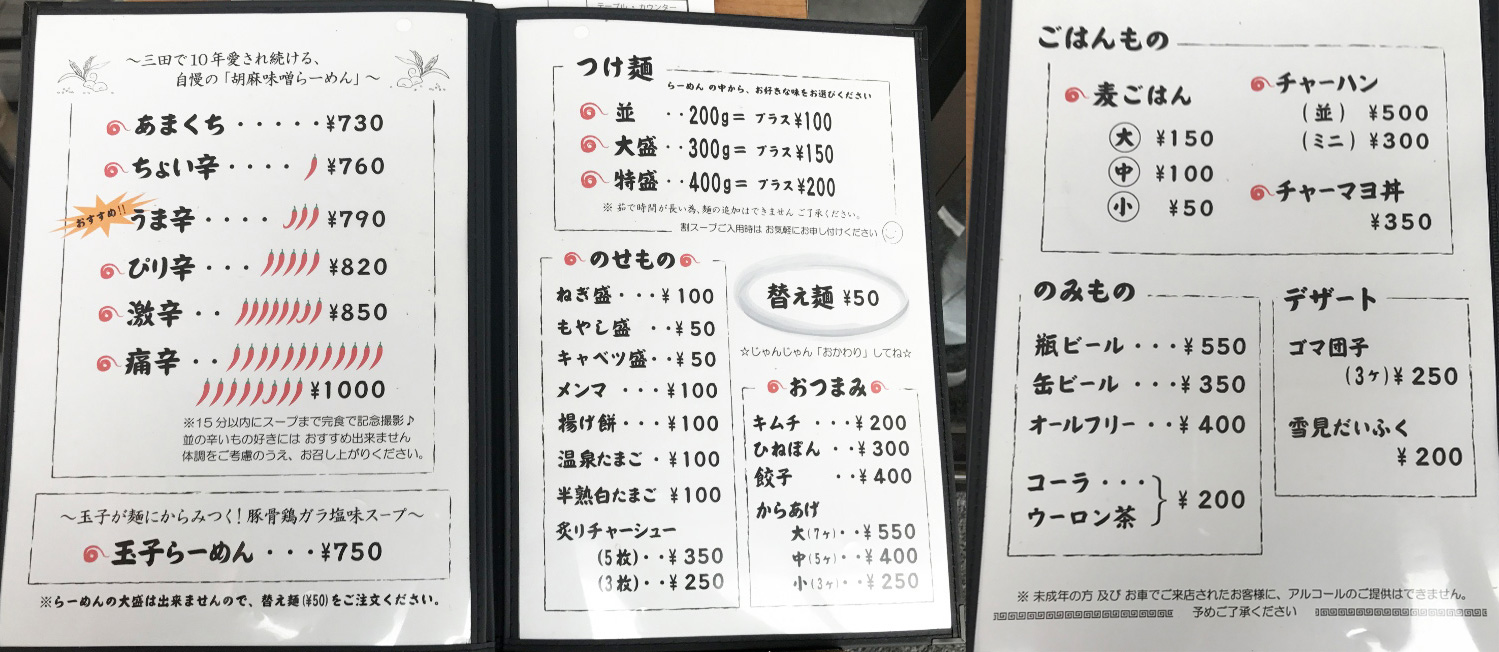 テーブル・カウンター
～三田で10年愛され続ける、
自慢の「胡麻味噌らーめん」～
あまくち ・・・・・¥730
ちょい辛・・・・ ¥760
おすすめ!!
うま辛・・・・ ¥790
ぴり辛・・・ ¥820
激辛・・ ¥850
痛辛・・
¥1000
※15分以内にスープまで完食で記念撮影♪
並の辛いもの好きには おすすめ出来ません
体調をご考慮のうえ、お召し上がりください。
～玉子が麺にからみつく!豚骨鶏ガラ塩味スープ～
玉子らーめん ・・・¥750
※らーめんの大盛は出来ませんので、替え麺(¥50)をご注文ください。
つけ麺
らーめん の中から、お好きな味をお選びください
並 ・・200g= プラス¥100
大盛・・300g= プラス¥150
特盛・・400g= プラス¥200
※ 茹で時間が長い為、麺の追加はできません ご了承ください。
割スープご入用時は お気軽にお申し付けください
のせもの
ねぎ盛・・・¥100
もやし盛 ・・¥50
キャベツ盛・・¥50
メンマ ・・・¥100
揚げ餅・・・¥100
温泉たまご・¥100
半熟白たまご ¥100
炙りチャーシュー
(5枚)・・¥350
(3枚)・・¥250
替え麺 ¥50
☆じゃんじゃん「おかわり」してね☆
おつまみ
キムチ ・・・¥200
ひねぽん ・・¥300
餃子 ・・¥400
からあげ
大(7ヶ)・・¥550
中(5ヶ)・・¥400
小(3ヶ)・・¥250
ごはんもの
麦ごはん
大 ¥150
中 ¥100
小 ¥50
チャーハン
(並) ¥500
(ミニ) ¥300
チャーマヨ丼
¥350
のみもの
瓶ビール ・・・¥550
缶ビール ・・・¥350
オールフリー ・・¥400
コーラ ・・・
ウーロン茶
¥200
デザート
ゴマ団子
(3ヶ)¥250
雪見だいふく
¥200
※ 未成年の方 及び お車でご来店されたお客様に、アルコールのご提供はできません。
予めご了承ください